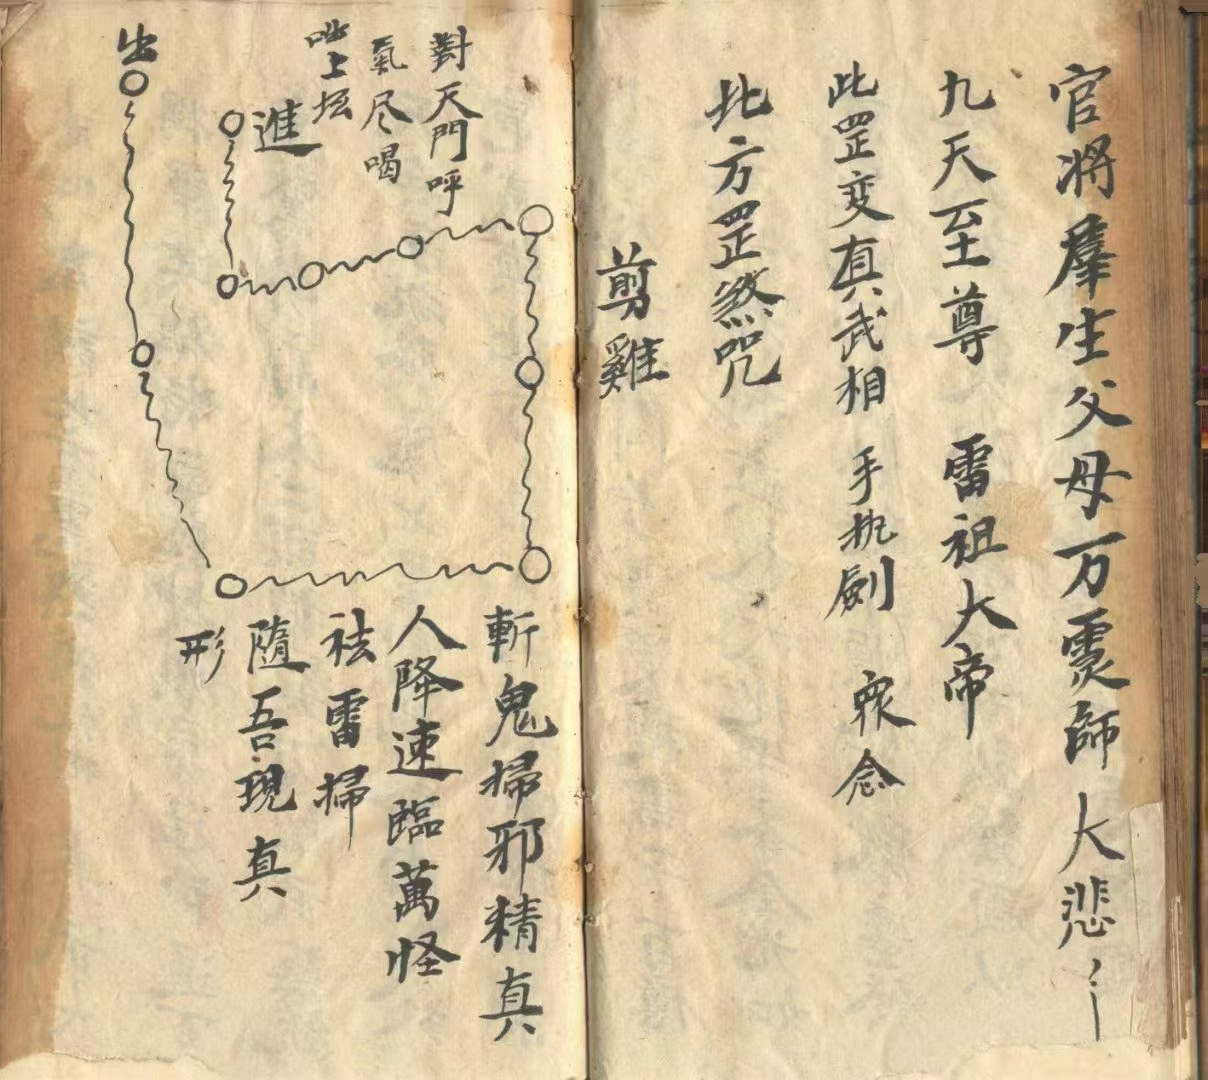 官將群生父母万灵師 大悲
九天至尊 雷祖大帝
此罡变真武相 手执劍 眾念
北方罡煞咒
剪雞
對天門呼
氣尽喝
上坛
進
出
斬鬼掃邪精真
人降速臨萬怪
祛雷掃
隨吾現真
形